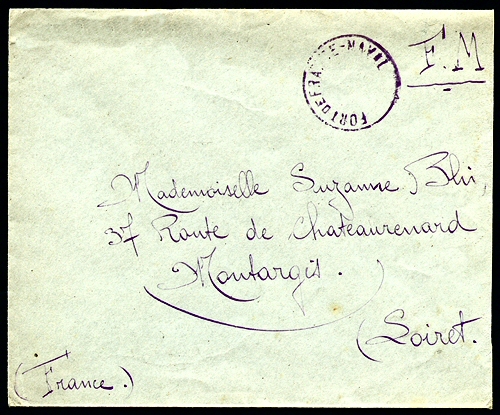 F.M
FORT DE FRANCE-NAVAL
Mademoiselle Suzanne Blin,
37 Route de Chateaurenard
Montargis.
(Loiret.
(France.)